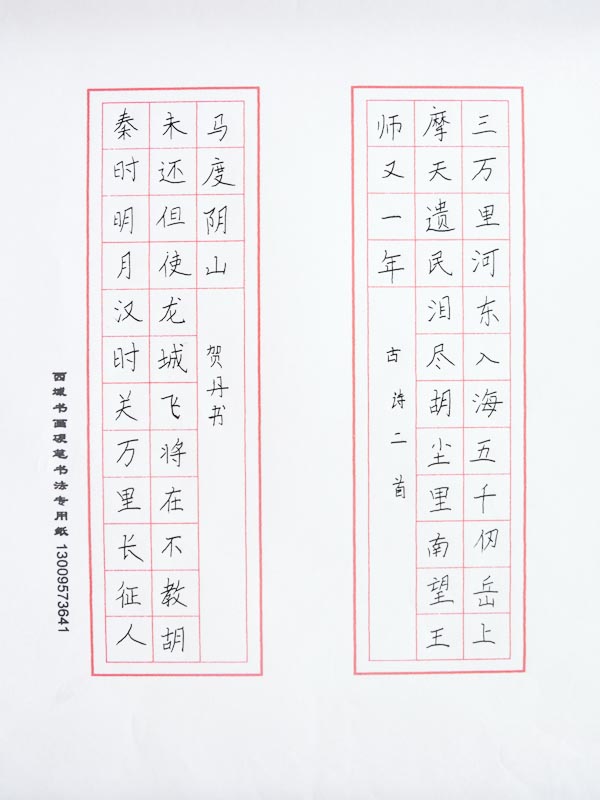 三万里河东入海五千仞岳上
摩天遗民泪尽胡尘里南望王
师又一年
古诗二首
秦时明月汉时关万里长征人
未还但使龙城飞将在不教胡
马度阴山
贺丹书
西域书画硬笔书法专用纸 13009573641